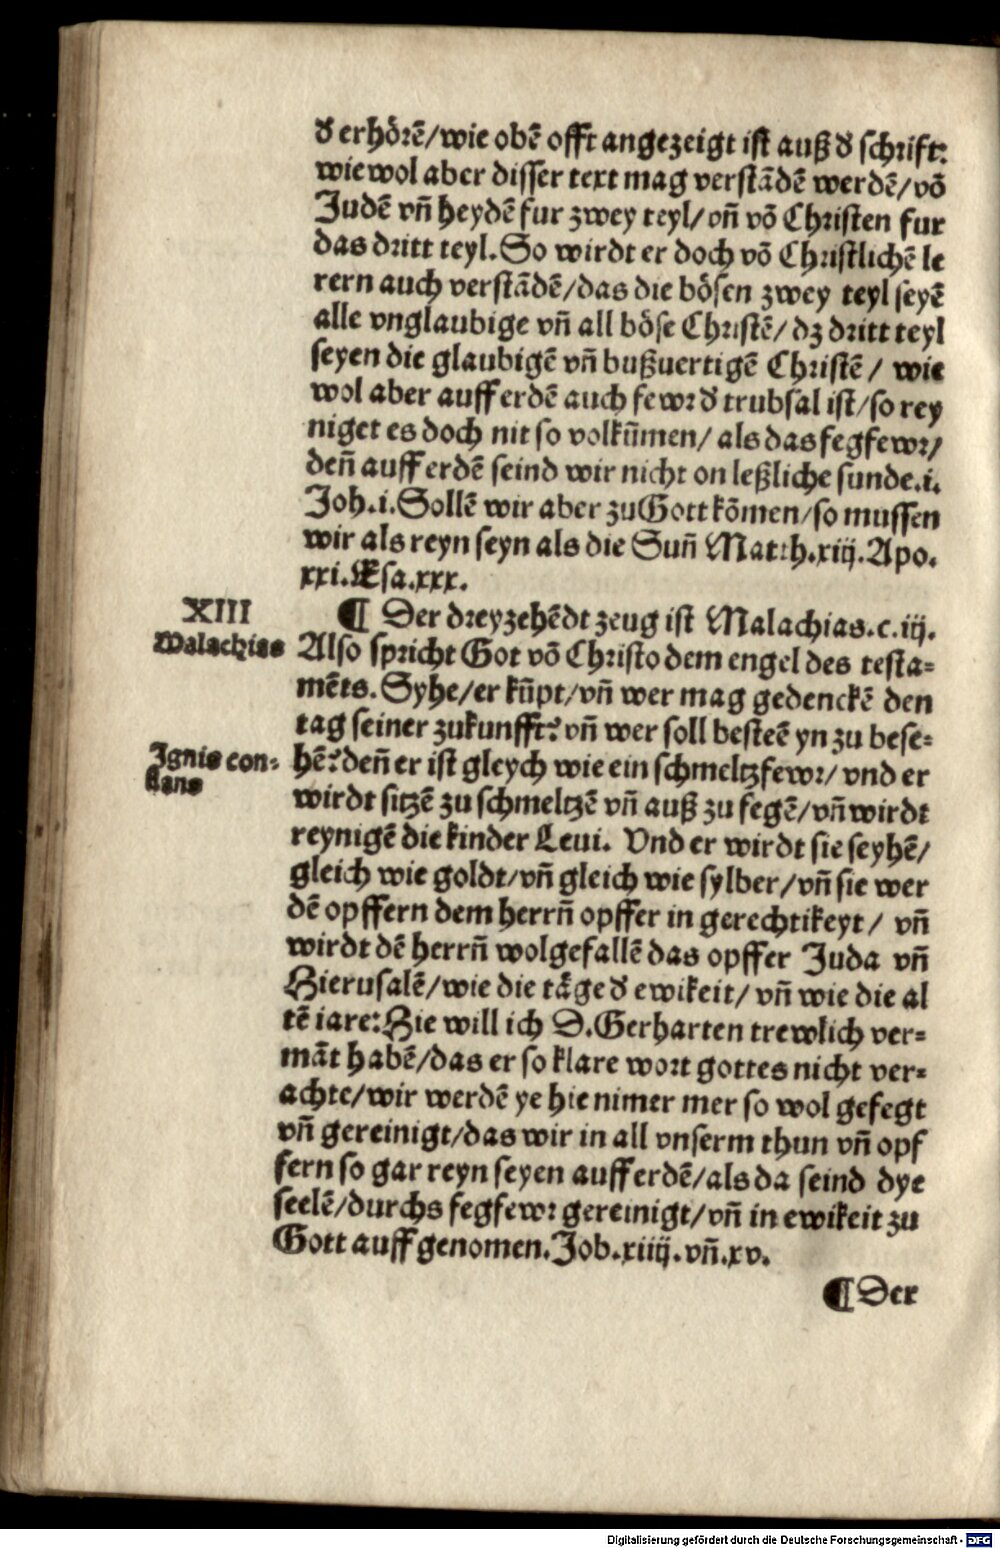 d̕ erhörē/wie obē offt angezeigt ist auß d̕ schrift:
wie wol aber disser text mag verstādē werdē/vō
Judē vn̄ heydē fur zwey teyl/vn̄ vō Christen fur
das dritt teyl. So wirdt er doch vō Christlichē le
rern auch verstādē/das die bösen zwey teyl seyē
alle vnglaubige vn̄ all böse Christē/dz dritt teyl
seyen die glaubigē vn̄ bußuertigē Christē/ wie
wol aber auff erdē auch fewr d̕ trubsal ist/so rey
niget es doch nit so volkūmen/ als das fegfewr/
den̄ auff erdē seind wir nicht on leßliche sunde.i.
Joh.i. Sollē wir aber zu Gott kōmen/so mussen
wir als reyn seyn als die Sun̄ Matth.xiij. Apo.
xxi. Esa.xxx.
XIII
¶ Der dreyzehēdt zeug ist Malachias.c.iij.
Malachias
Also spricht Got vō Christo dem engel des testa-
mēts. Syhe/er kūpt/vn̄ wer mag gedenckē den
tag seiner zukunfft? vn̄ wer soll besteē yn zu bese-
Ignis con-
flans
hē? den̄ er ist gleych wie ein schmeltzfewr/ vnd er
wirdt sitzē zu schmeltzē vn̄ auß zu fegē/vn̄ wirdt
reynigē die kinder Leui. Vnd er wirdt sie seyhē/
gleich wie goldt/vn̄ gleich wie sylber/vn̄ sie wer
dē opffern dem herrn̄ opffer in gerechtikeyt/ vn̄
wirdt dē herrn̄ wolgefallē das opffer Juda vn̄
Hierusalē/wie die täge d̕ ewikeit/ vn̄ wie die al
tē iare: Hie will ich D. Gerharten trewlich ver-
māt habē/das er so klare wort gottes nicht ver-
achte/wir werdē ye hie nimer mer so wol gefegt
vn̄ gereinigt/das wir in all vnserm thun vn̄ opf
fern so gar reyn seyen auff erdē/als da seind dye
seelē/durchs fegfewr gereinigt/vn̄ in ewikeit zu
Gott auff genomen. Job.xiiij.vn̄.xv.
¶ Der
Digitalisierung gefördert durch die Deutsche Forschungsgemeinschaft - DFG